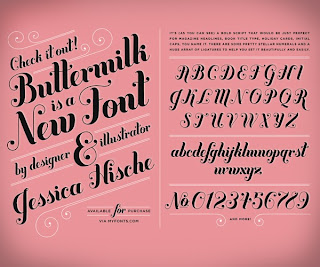 Check it out!
Buttermilk
is a
New Font
by designer & illustrator
Jessica Hische
AVAILABLE for PURCHASE
VIA MYFONTS.COM
IT'S (AS YOU CAN SEE) A BOLD SCRIPT THAT WOULD BE JUST PERFECT
FOR MAGAZINE HEADLINES, BOOK TITLE TYPE, HOLIDAY CARDS, INITIAL
CAPS, YOU NAME IT. THERE ARE SOME PRETTY STELLAR NUMERALS AND A
HUGE ARRAY OF LIGATURES TO HELP YOU SET IT BEAUTIFULLY AND EASILY.
ABCDEFGH
IJKLMNOPQR
STUVWXYZ
abcdefghijklmnopqrst
uvwxyz
No01234567789
AND MORE!